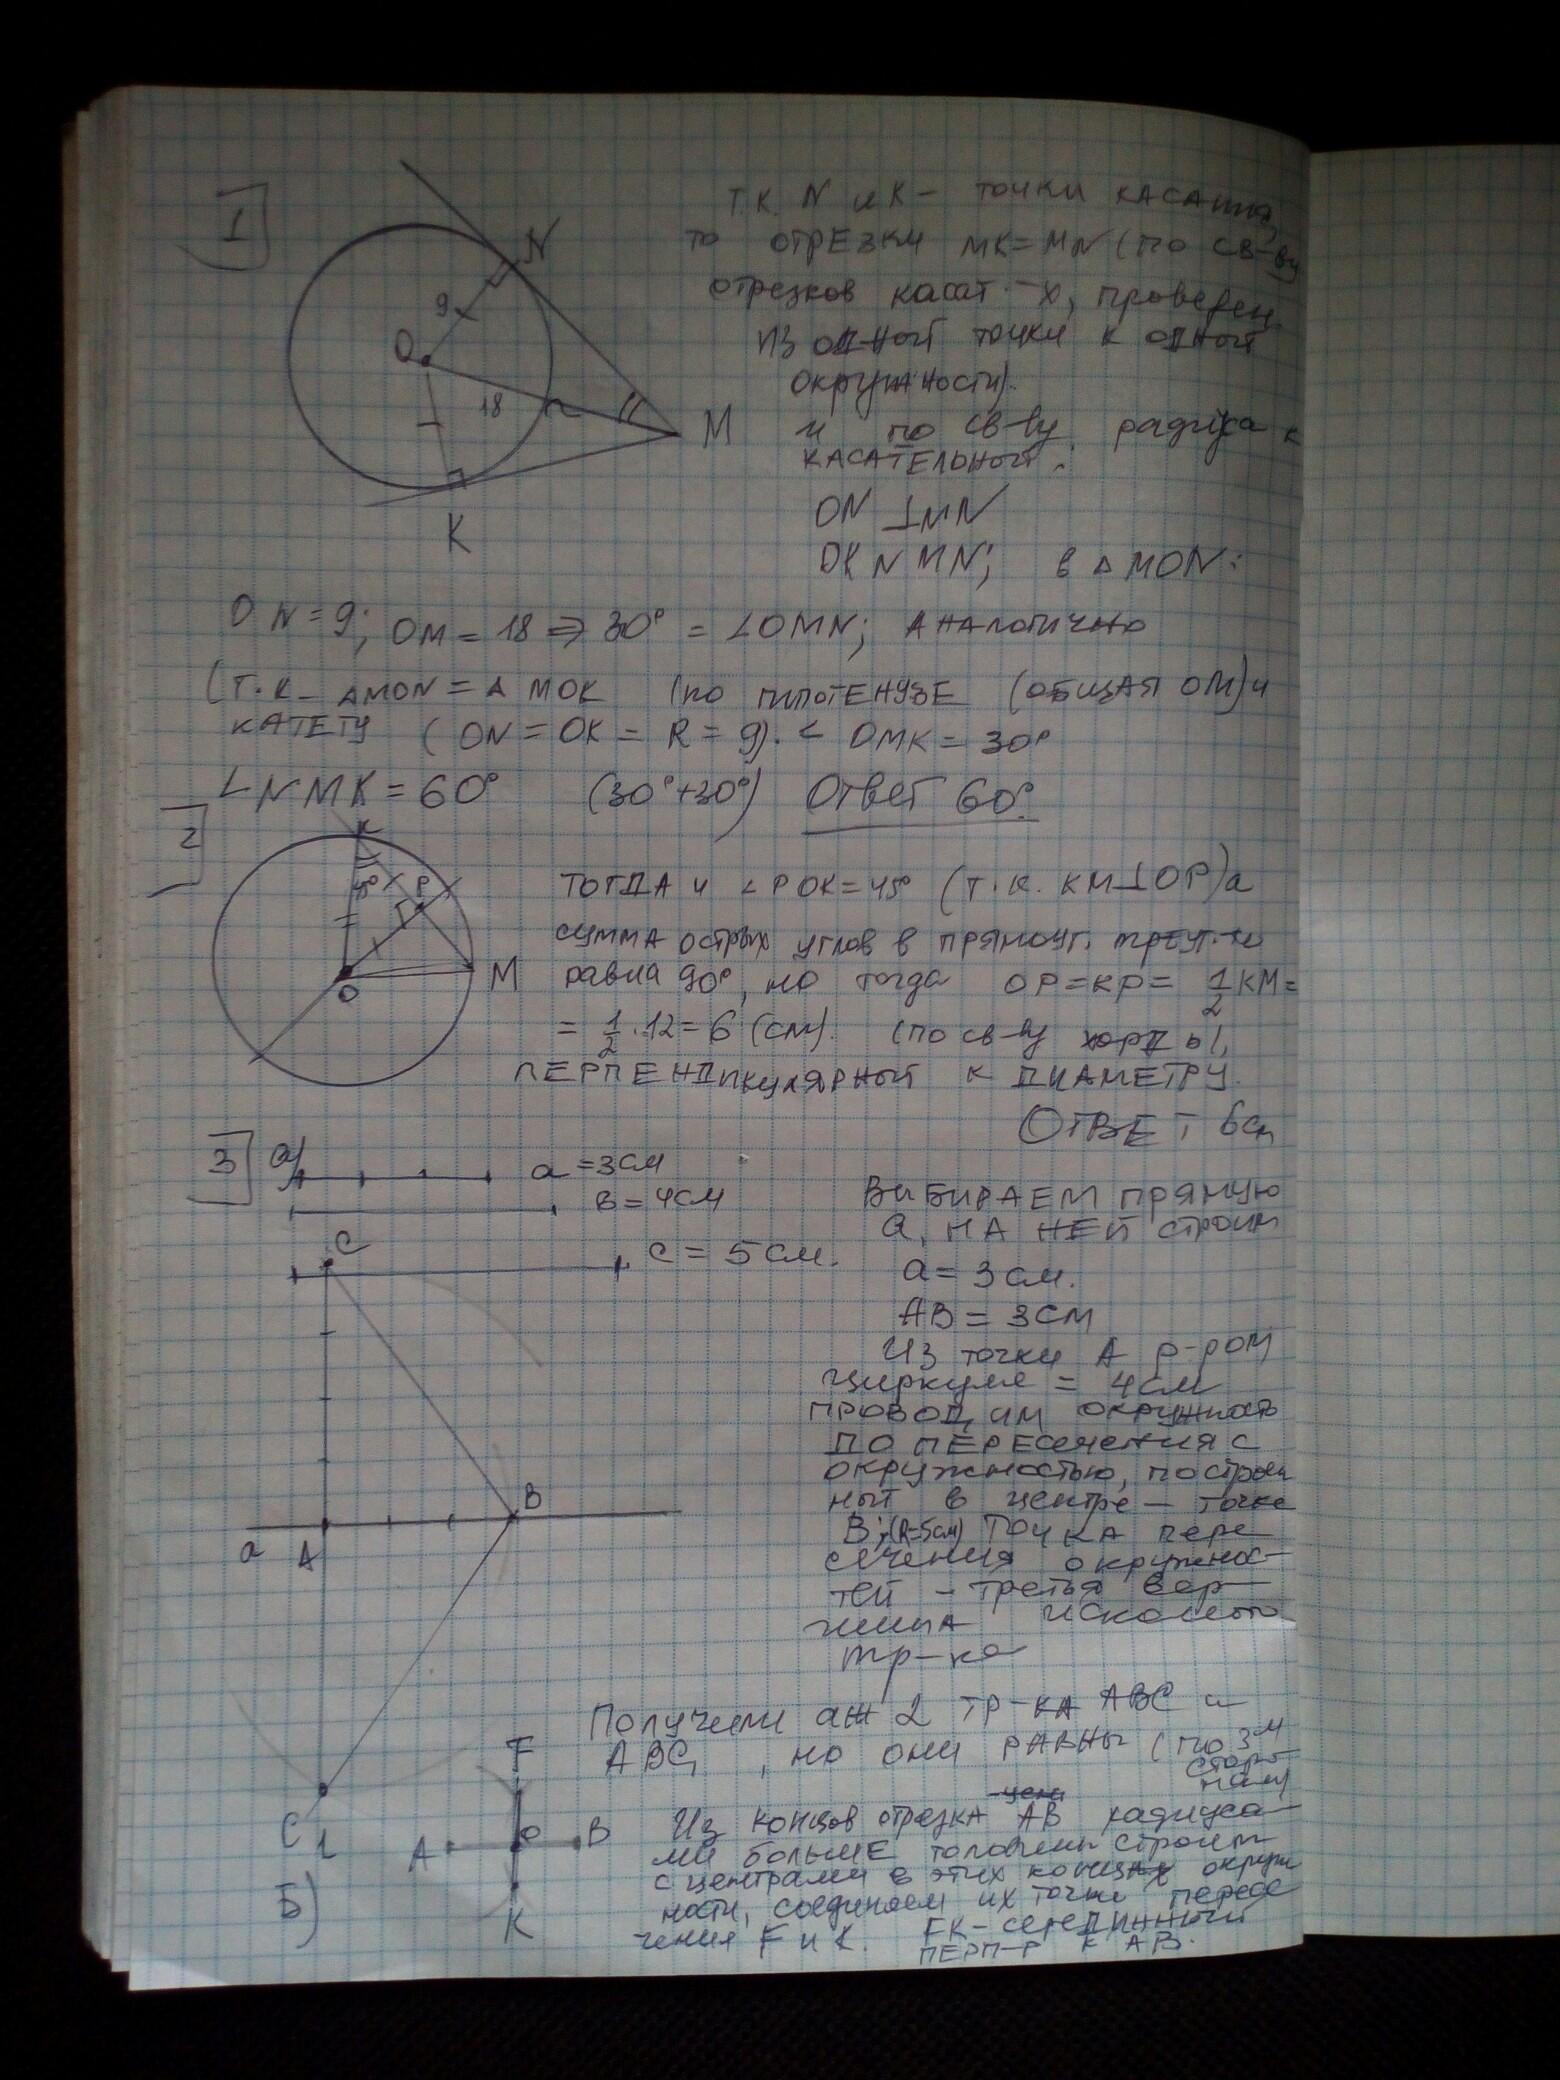 1
N
9
O
18
M
K
т.к. N и K - точки касания,
то отрезки MK = MN (по св-ву
отрезков касат-х, проведен
из одной точки к одной
окружности).
и по св-ву радиуса к
касательной:
ON ⊥ MN
OK N MN; в △MON:
ON = 9; OM = 18 ⇒ 30° = ∠OMN; аналогично
(т.к. △MON = △MOK (по гипотенузе (общая OM) и
катету (ON = OK = R = 9). ∠OMK = 30°
∠NMK = 60° (30°+30°) Ответ 60°.
2
K
45°
P
O
M
тогда и ∠POK = 45° (т.к. KM⊥OP) а
сумма острых углов в прямоуг. треуг-ке
равна 90°, но тогда OP = KP = 1/2 KM =
= 1/2 · 12 = 6 (см). (по св-ву хорды,
перпендикулярной к диаметру.
Ответ 6см
3
а)
a = 3см
в = 4см
c = 5см.
C
a
A
B
C1
Выбираем прямую
a, на ней строим
a = 3см.
AB = 3см
Из точки A р-ром
циркуля = 4см
проводим окружность
до пересечения с
окружностью, построен
ной в центре - точке
B; (R=5см) Точка пере
сечения окружнос-
тей - третья вер-
шина искомого
тр-ка
Получили аж 2 тр-ка ABC и
ABC1, но они равны (по 3-м
сторо-
нам)
Б)
F
A
O
B
K
Из концов отрезка AB радиуса-
ми больше половины строим
с центрами в этих концах окруж
ности, соединяем их точки пересе
чения F и K. FK - серединный
перп-р к AB.